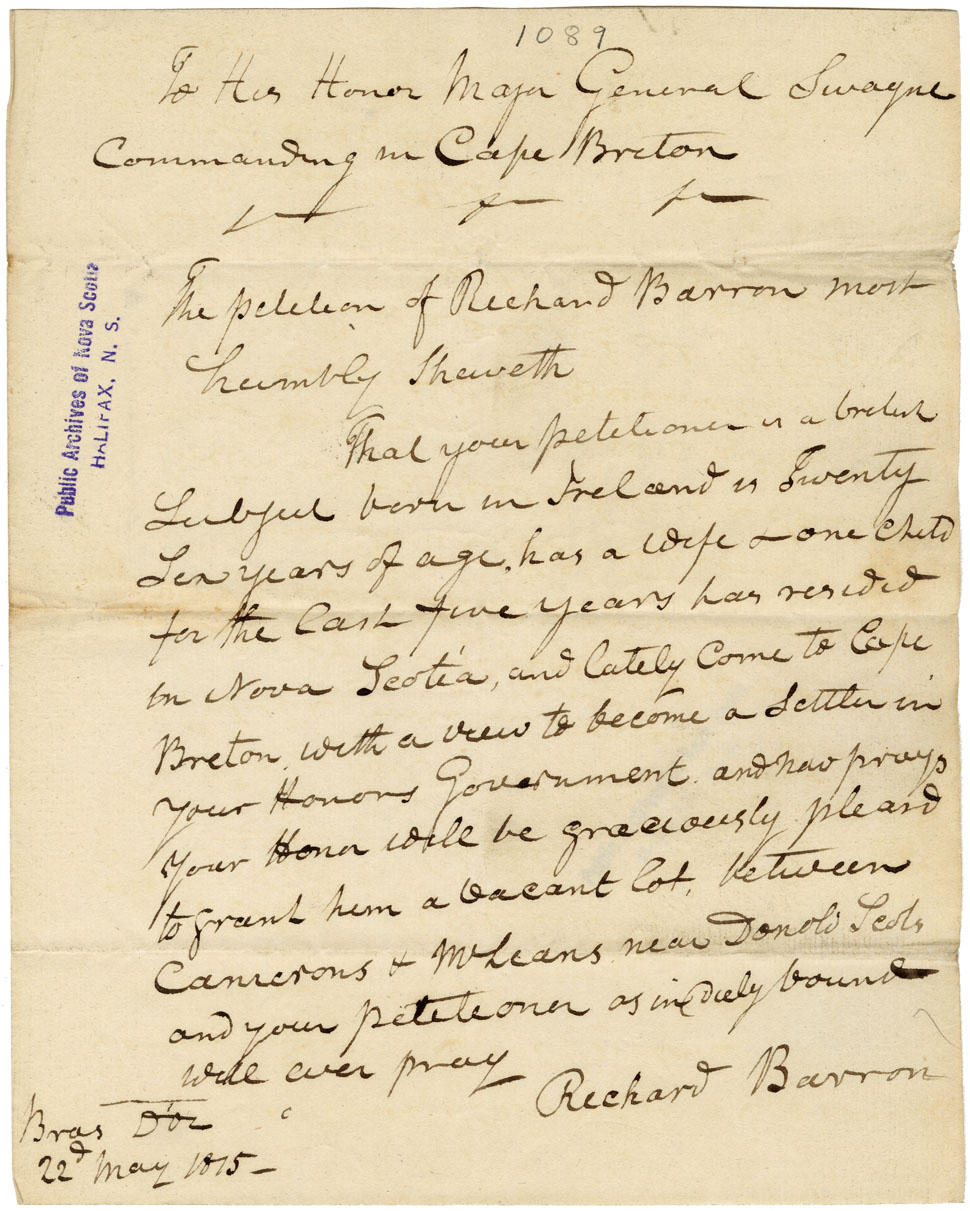 1089
To His Honor Major General Swayne
Commanding in Cape Breton
The petition of Richard Barron most
humbly Sheweth
That your petitioner is a british
Subject born in Ireland is Twenty
Six years of age, has a wife & one child
for the last five years has resided
in Nova Scotia, and lately Come to Cape
Breton, with a view to become a Settler in
your Honors Government. and hav prays
your Honor will be graciously pleasd
to grant him a vacant lot, between
Camerons & McLeans near Donold Scots
and your petitioner as in duty bound
will ever pray
Richard Barron
Bras D'or
22d May 1815
Public Archives of Nova Scotia
HALIFAX, N. S.